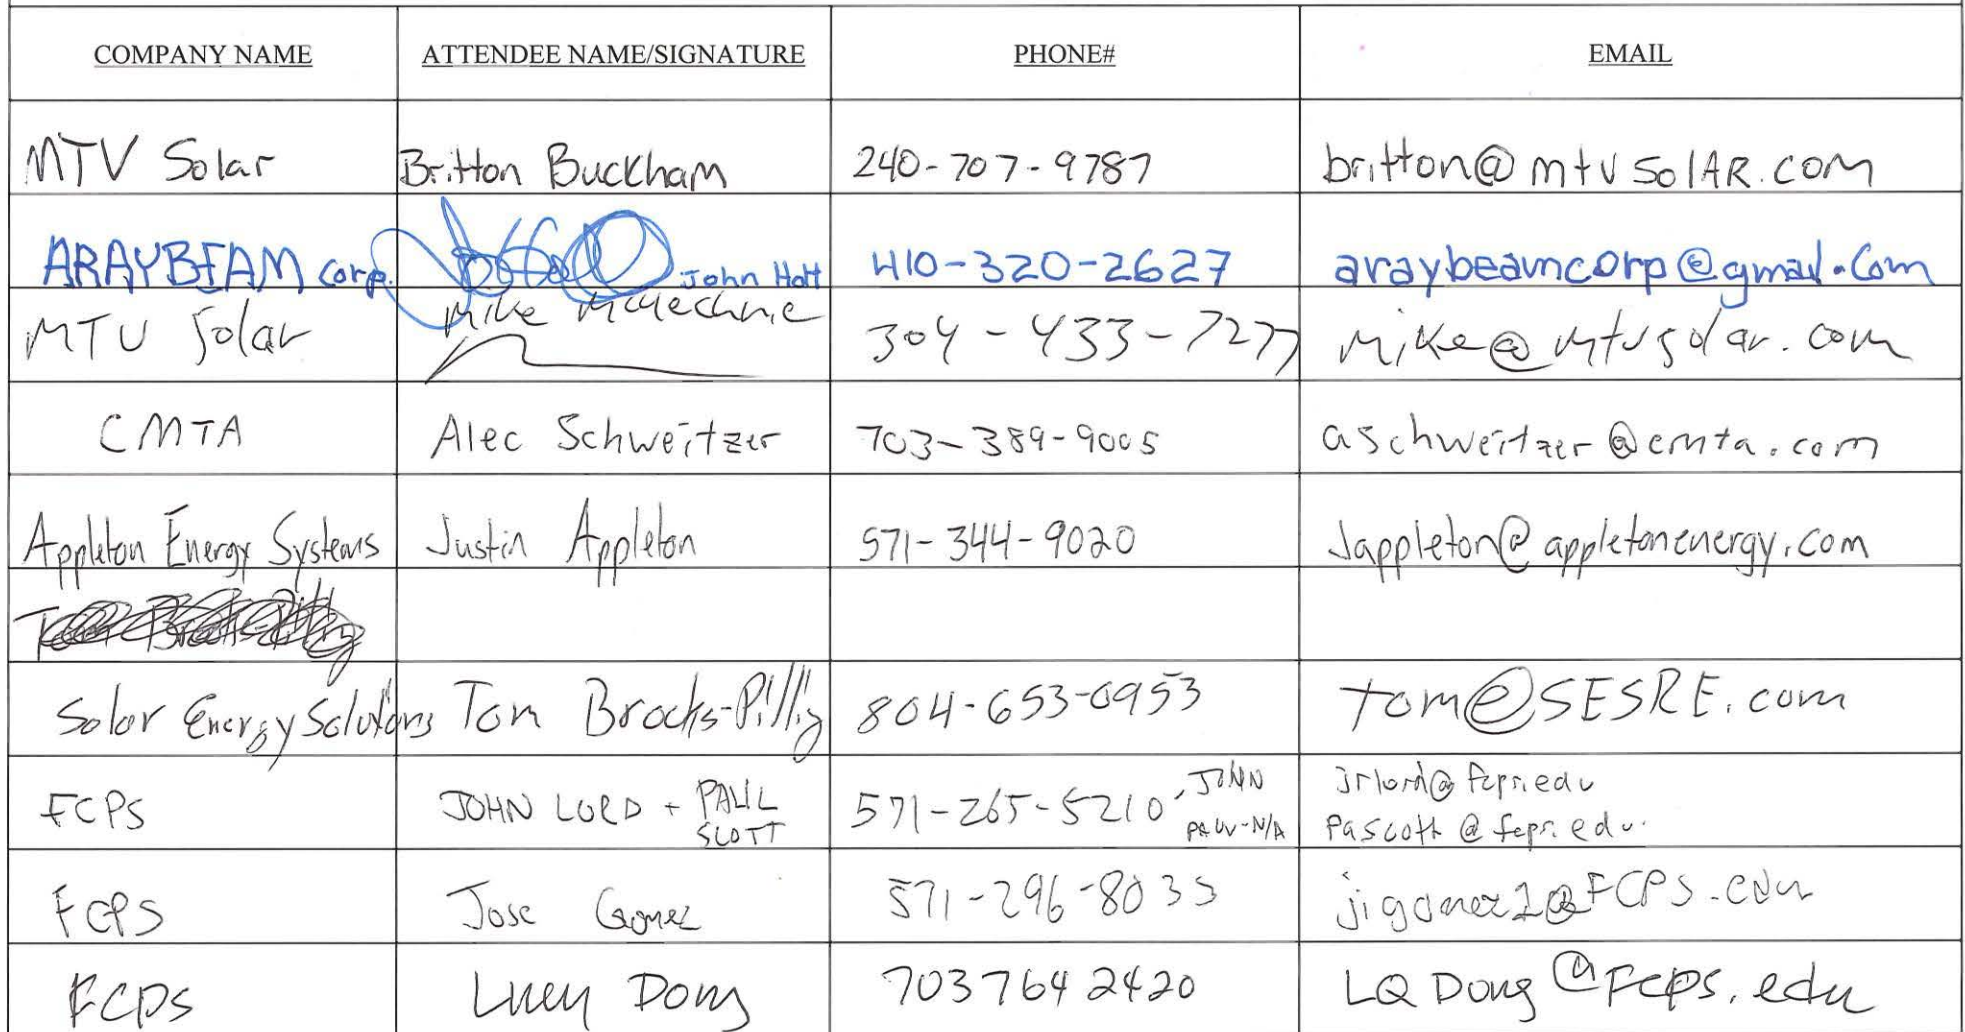 COMPANY NAME ATTENDEE NAME/SIGNATURE PHONE# EMAIL
MTV Solar Britton Buckham 240-707-9787 britton@mtvSolAR.com
ARAYBEAM Corp. John Hott 410-320-2627 araybeamcorp@gmail.Com
MTV Solar Mike McKechnie 304-433-7277 Mike@mtvsolar.com
CMTA Alec Schweitzer 703-389-9005 aschweitzer@cmta.com
Appleton Energy Systems Justin Appleton 571-344-9020 Jappleton@appletonenergy.com
Solar Energy Solutions Tom Brooks-Pilling 804-653-0953 tom@SESRE.com
FCPS JOHN LORD + PAUL SCOTT 571-265-5210, JOHN PAUL-N/A jrlord@fcps.edu
pascott@fcps.edu.
FCPS Jose Gomez 571-296-8035 jigomez1@FCPS.edu
FCPS Lucy Dong 703 764 2420 LQ Dong@Fcps.edu